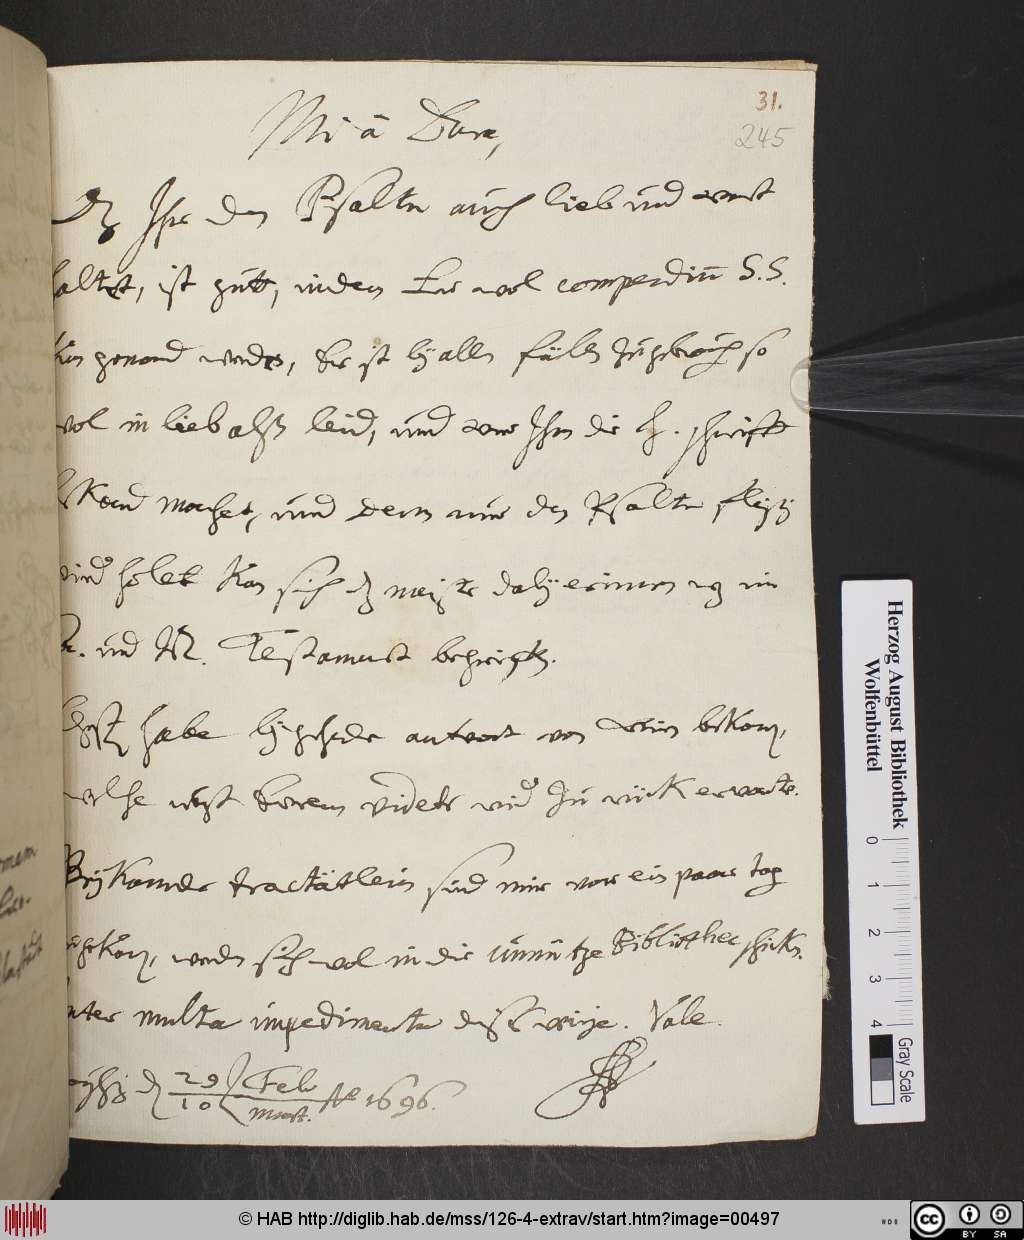 31.
245
Mi ā Dure,
dz Ihr den Psalter auch lieb und wert
haltet, ist gutt, indem Er wol compendiū S.S.
kan genand werden, Er ist bÿ allen fällen zugebrauch so
wol in lieb alß leid, und wer Ihm die h. schrifft
bekand machet, und dem nur den Psalter fleißig
wider holet kan sich dz meiste dabÿ erinnern wz im
A. und N. Testament begriffen.
habe bÿ gehende antwort von bekom̄,
welche wider zu rück erwarte.
Beÿ kommende tractätlein sind mir vor ein paar tag
zugekom̄, werden sich wol in die unnütze Bibliothec schicken.
Inter multa impedimenta diß schreibe. Vale.
d 29/10 Febr/Mart. Aº 1696.
Herzog August Bibliothek
Wolfenbüttel
0 1 2 3 4
Gray Scale
© HAB http://diglib.hab.de/mss/126-4-extrav/start.htm?image=00497
cc BY SA